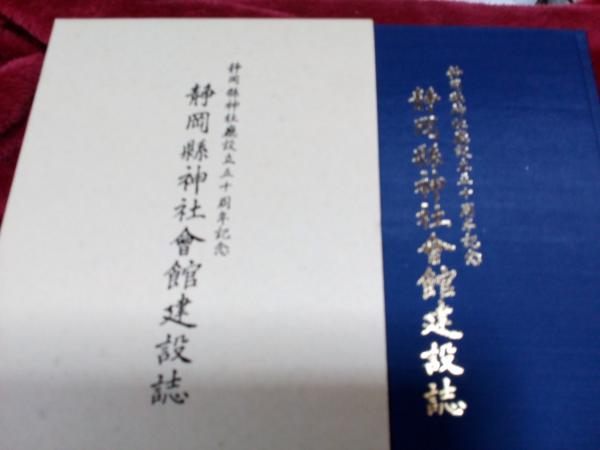 静岡縣神社廳設立五十周年記念
静岡縣神社會館建設誌
静岡縣神社廳設立五十周年記念
静岡縣神社會館建設誌